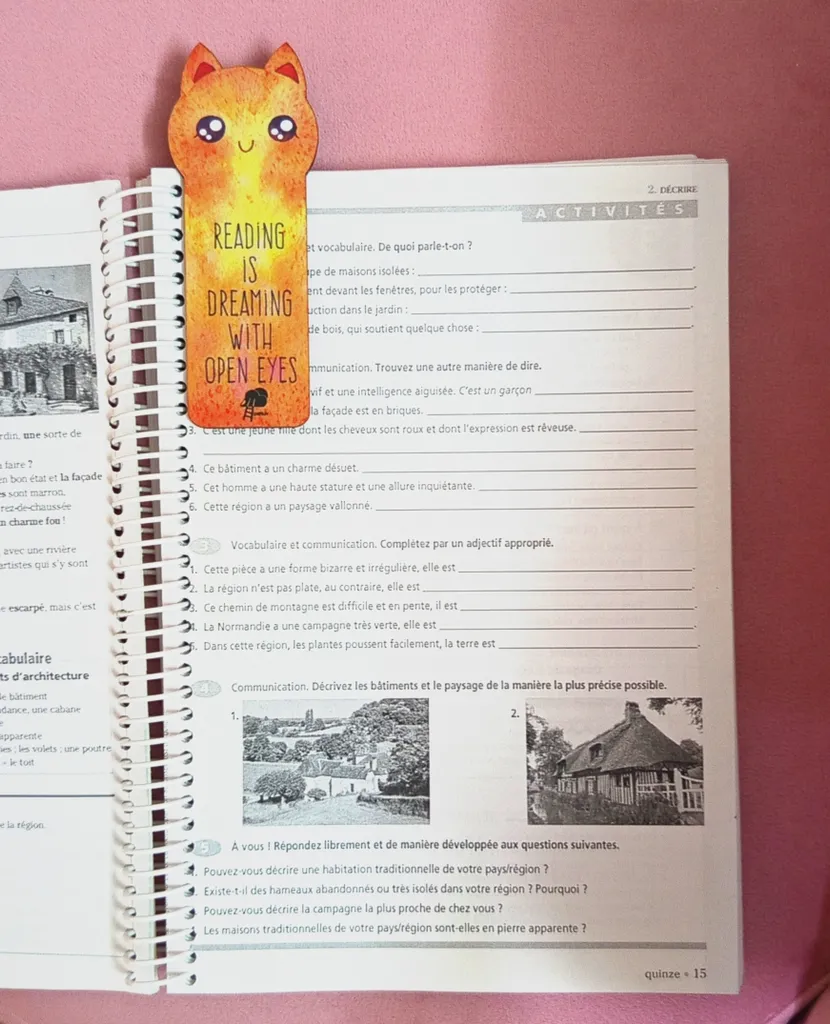 rdin, une sorte de
faire ?
en bon état et la façade
es sont marron,
rez-de-chaussée
n charme fou !
avec une rivière
artistes qui s'y sont
e escarpé, mais c'est
cabulaire
ts d'architecture
le bâtiment
ndance, une cabane
e
apparente
es ; les volets ; une poutre
= le toit
e la région.
READING
IS
DREAMING
WITH
OPEN EYES
2. DÉCRIRE
ACTIVITÉS
et vocabulaire. De quoi parle-t-on ?
pe de maisons isolées :
ent devant les fenêtres, pour les protéger :
uction dans le jardin :
de bois, qui soutient quelque chose :
mmunication. Trouvez une autre manière de dire.
vif et une intelligence aiguisée. C'est un garçon
la façade est en briques.
3. C'est une jeune fille dont les cheveux sont roux et dont l'expression est rêveuse.
4. Ce bâtiment a un charme désuet.
5. Cet homme a une haute stature et une allure inquiétante.
6. Cette région a un paysage vallonné.
3 Vocabulaire et communication. Complétez par un adjectif approprié.
1. Cette pièce a une forme bizarre et irrégulière, elle est
2. La région n'est pas plate, au contraire, elle est
3. Ce chemin de montagne est difficile et en pente, il est
4. La Normandie a une campagne très verte, elle est
5. Dans cette région, les plantes poussent facilement, la terre est
4 Communication. Décrivez les bâtiments et le paysage de la manière la plus précise possible.
1.
2.
5 À vous ! Répondez librement et de manière développée aux questions suivantes.
Pouvez-vous décrire une habitation traditionnelle de votre pays/région ?
Existe-t-il des hameaux abandonnés ou très isolés dans votre région ? Pourquoi ?
Pouvez-vous décrire la campagne la plus proche de chez vous ?
Les maisons traditionnelles de votre pays/région sont-elles en pierre apparente ?
quinze • 15